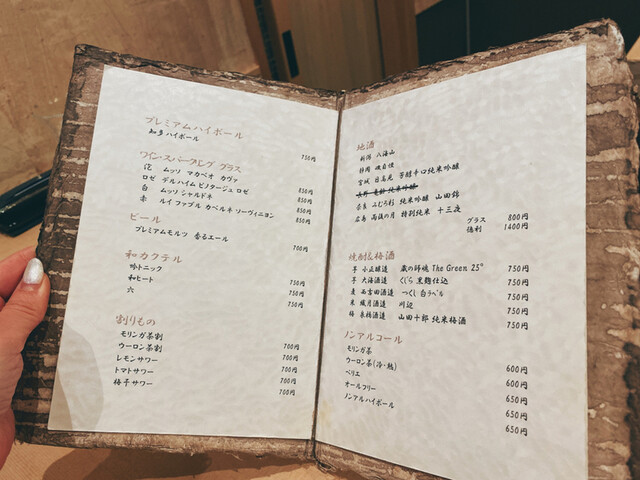 プレミアムハイボール
知多ハイボール 750円
ワイン・スパークリング グラス
泡 ムッソ マカベオ カヴァ 850円
ロゼ デルハイム ピノタージュ ロゼ 850円
白 ムッソ シャルドネ 850円
赤 ルイ ファブル カベルネ ソーヴィニヨン 850円
ビール
プレミアムモルツ 香るエール 700円
和カクテル
吟トニック 750円
和ヒート 750円
六 750円
割りもの
モリンガ茶割 700円
ウーロン茶割 700円
レモンサワー 700円
トマトサワー 700円
梅干サワー 700円
地酒
新潟 八海山
静岡 磯自慢
宮城 日高見 芳醇辛口純米吟醸
純米吟醸
奈良 みむろ杉 純米吟醸 山田錦
広島 雨後の月 特別純米 十三夜
グラス 800円
徳利 1400円
焼酎&梅酒
芋 小正醸造 蔵の師魂 The Green 25° 750円
芋 大海酒造 くじら 黒麹仕込 750円
麦 西吉田酒造 つくし 白ラベル 750円
米 繊月酒造 川辺 750円
梅 来福酒造 山田十郎 純米梅酒 750円
ノンアルコール
モリンガ茶 600円
ウーロン茶(冷・熱) 600円
ペリエ 650円
オールフリー 650円
ノンアルハイボール 650円